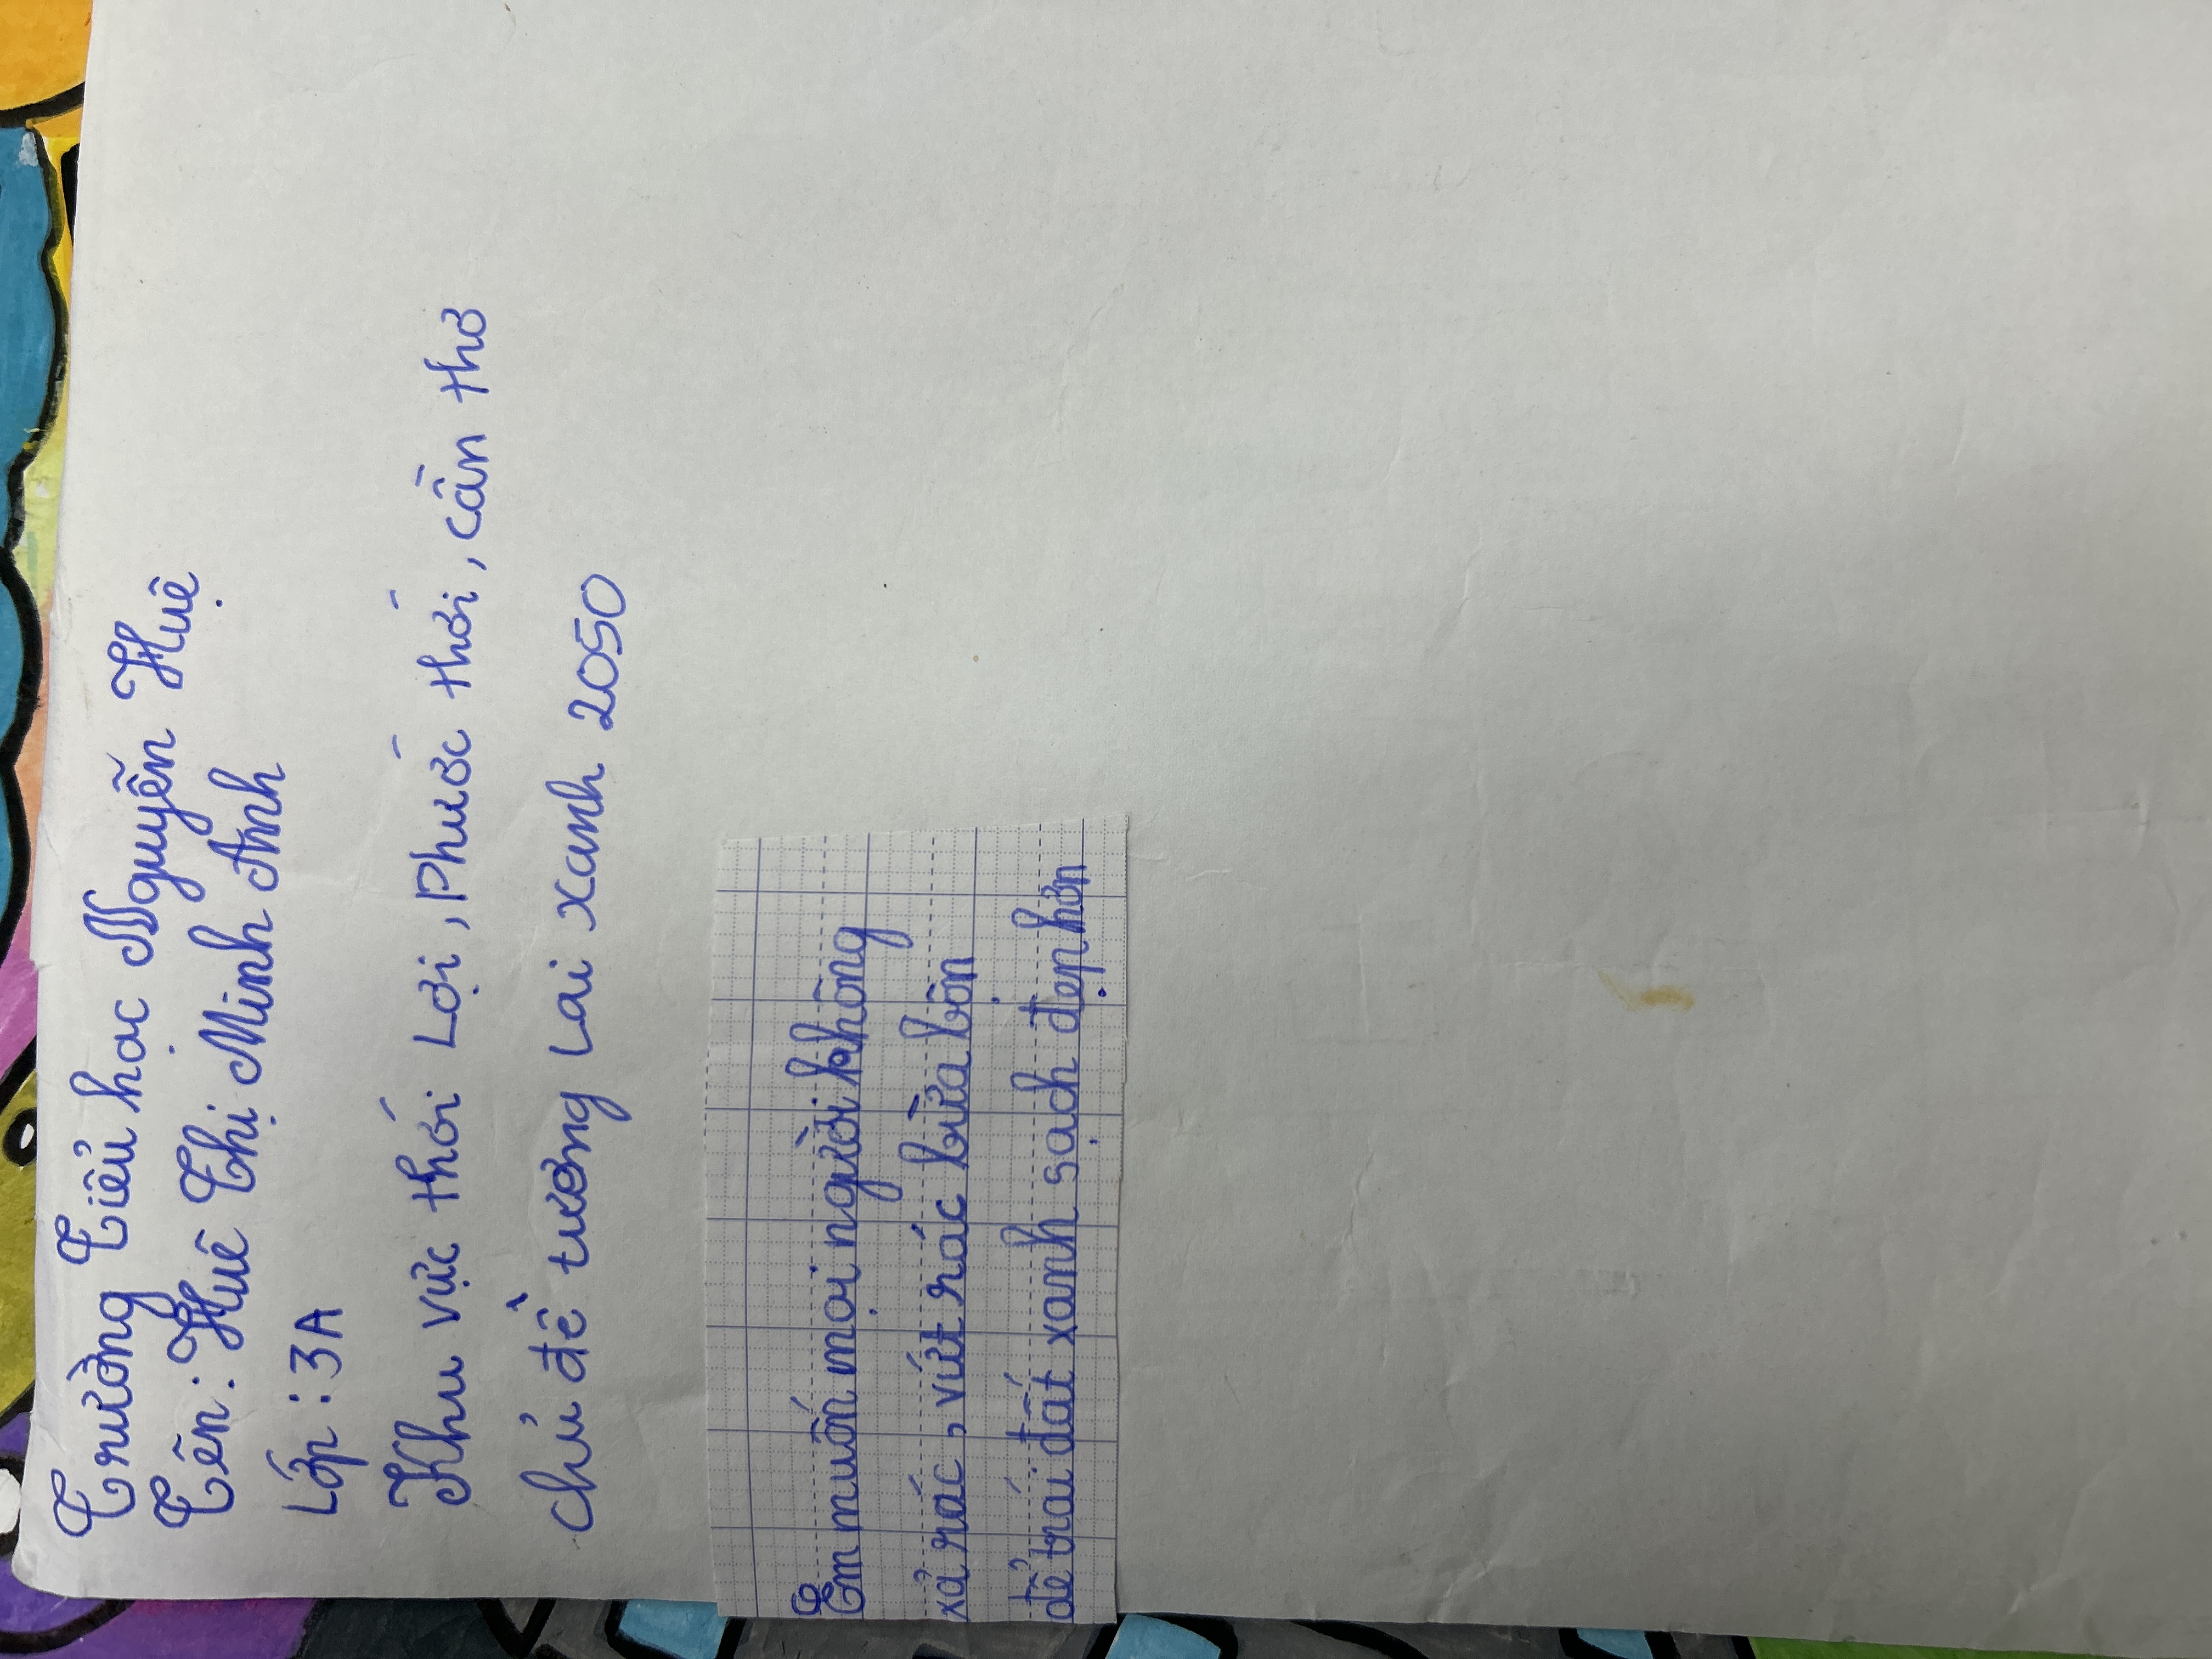 Trường Tiểu học Nguyễn Huệ
Tên : Huê Thị Minh Anh
Lớp : 3A
Khu vực thới Lợi, Phước thới, cần thơ
chủ đề tương Lai xanh 2050
Em muốn mọi người không
xả rác, vứt rác bừa bồn
để trái đất xanh sạch đẹp hơn